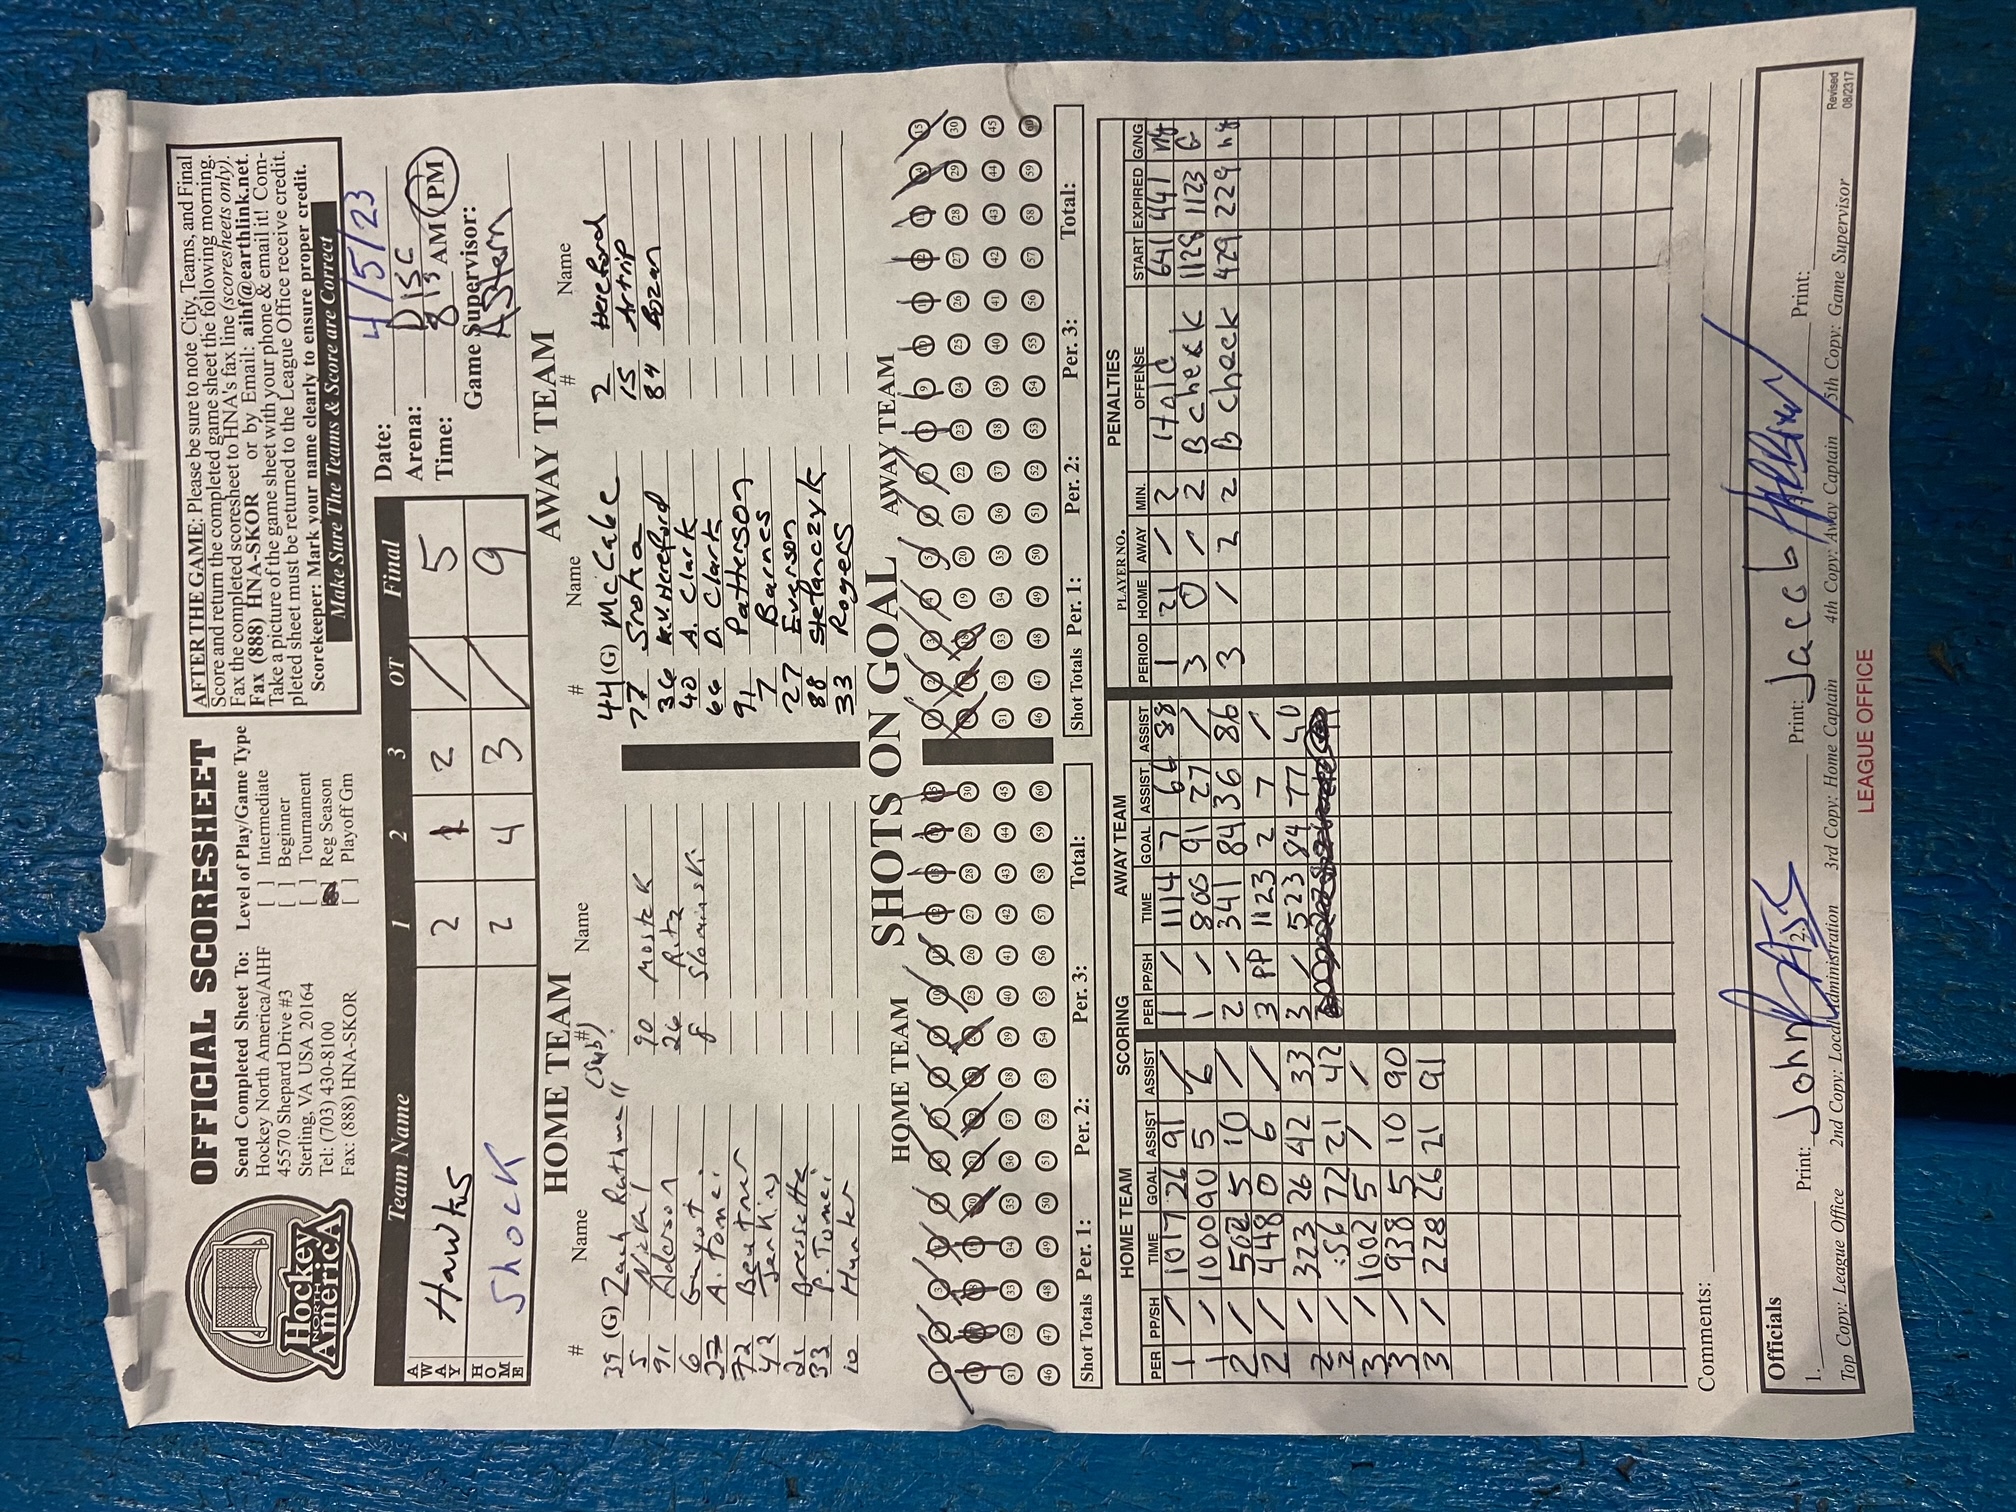 Hockey
NORTH
AmericA
OFFICIAL SCORESHEET
Send Completed Sheet To:
Hockey North America/AIHF
45570 Shepard Drive #3
Sterling, VA USA 20164
Tel: (703) 430-8100
Fax: (888) HNA-SKOR
Level of Play/Game Type
[ ] Intermediate
[ ] Beginner
[ ] Tournament
Reg Season
[ ] Playoff Gm
AFTER THE GAME: Please be sure to note City, Teams, and Final
Score and return the completed game sheet the following morning.
Fax the completed scoresheet to HNA's fax line (scoresheets only).
Fax (888) HNA-SKOR or by Email: aihf@earthlink.net.
Take a picture of the game sheet with your phone & email it! Com-
pleted sheet must be returned to the League Office receive credit.
Scorekeeper: Mark your name clearly to ensure proper credit.
Make Sure The Teams & Score are Correct
Team Name 1 2 3 OT Final
AWAY Hawks 2 1 2 / 5
HOME Shock 2 4 3 / 9
Date: 4/15/23
Arena: DISC
Time: 815 AM PM
Game Supervisor:
A Stern
HOME TEAM
# Name # Name
39 (G) Zach Rathme (Sub)
5 Nicki
91 Aderson
6 Guyot
27 A. Tomei
72 Beutner
42 Jenkins
21 Bressette
33 P. Tomei
10 Hunter
90 Mostek
26 Ritz
8 Slominski
AWAY TEAM
# Name # Name
44 (G) McCabe
77 Sroka
36 K.V. Hereford
40 A. Clark
66 D. Clark
91 Patterson
7 Barnes
27 Evenson
88 Stefanczyk
33 Rogers
2 Hereford
15 Artrip
84 Bozan
SHOTS ON GOAL
HOME TEAM AWAY TEAM
Shot Totals Per. 1: Per. 2: Per. 3: Total:
Shot Totals Per. 1: Per. 2: Per. 3: Total:
SCORING
HOME TEAM
PER PP/SH TIME GOAL ASSIST ASSIST
1 / 1017 26 91 /
1 / 1000 90 5 6
2 / 502 5 10 /
2 / 448 0 6 /
2 / 323 26 42 33
2 / :56 72 21 42
3 / 1002 5 / /
3 / 938 5 10 90
3 / 228 26 21 91
AWAY TEAM
PER PP/SH TIME GOAL ASSIST ASSIST
1 / 1114 7 66 88
1 / 800 91 27 /
2 / 341 84 36 86
3 PP 1123 2 7 /
3 / 523 84 77 40
PENALTIES
PLAYER NO.
PERIOD HOME AWAY MIN. OFFENSE START EXPIRED G/NG
1 21 / 2 Hold 641 441 ng
3 0 / 2 B check 1128 1123 G
3 / 2 2 B check 429 229 ng
Comments:
Officials
1. Print: John Print: Jacob Print:
Top Copy: League Office 2nd Copy: Local Administration 3rd Copy: Home Captain 4th Copy: Away Captain 5th Copy: Game Supervisor
Revised
08/2317
LEAGUE OFFICE